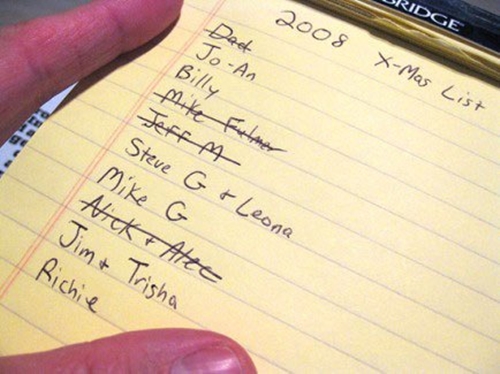 BRIDGE
2008 X-Mas List
Dad
Jo-An
Billy
Mike Fulmer
Jeff M
Steve G + Leona
Mike G
Nick + Alec
Jim + Trisha
Richie